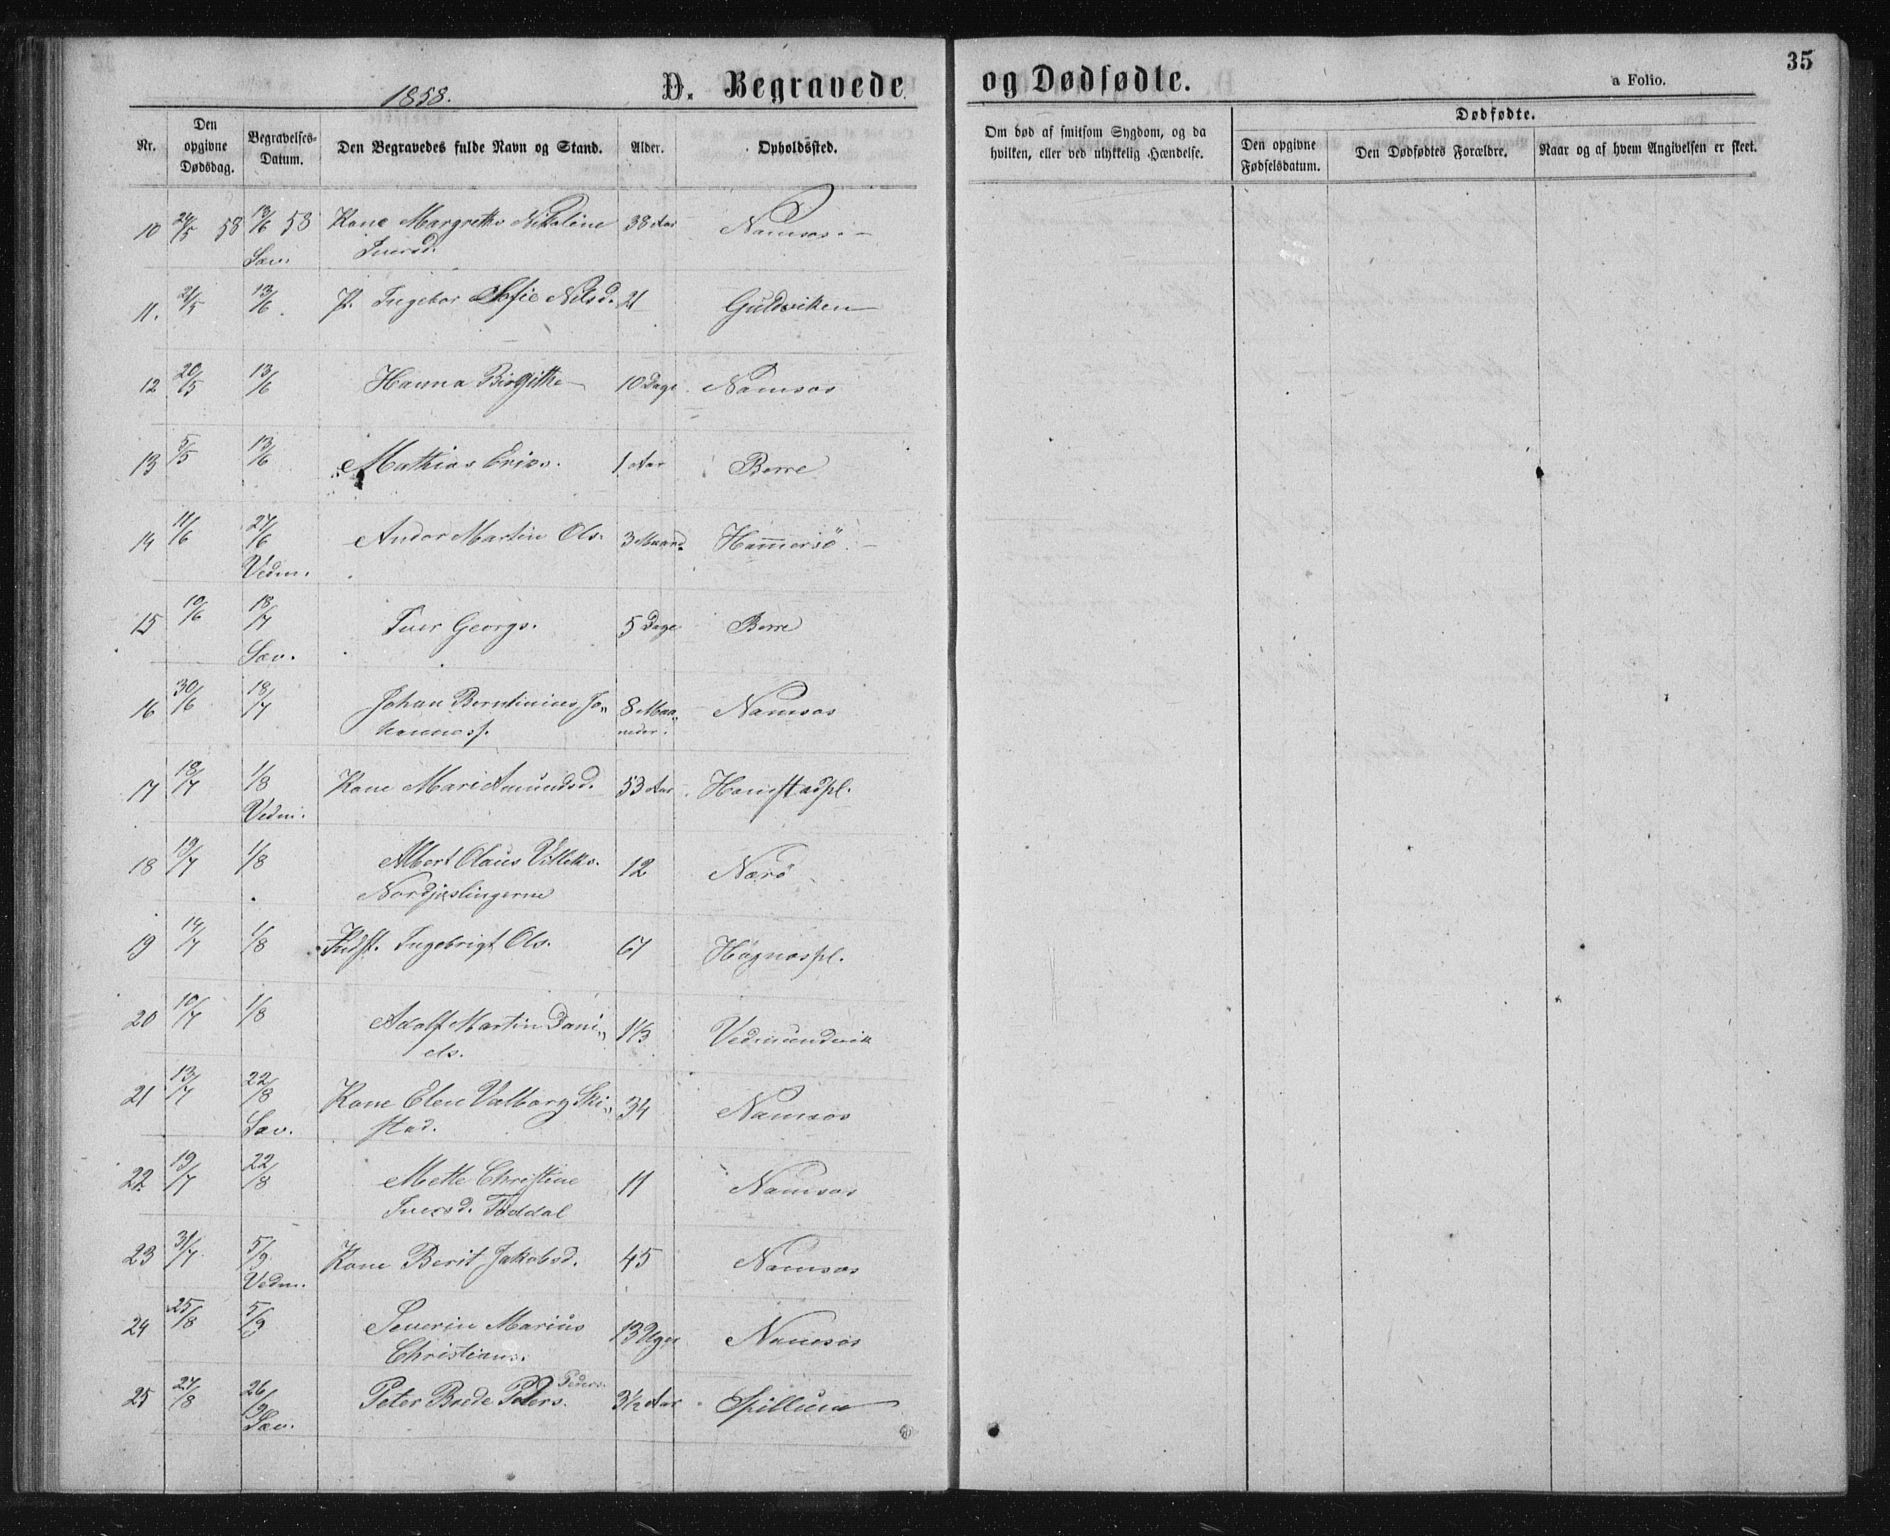 1858.
D. Begravede
og Dødfødte.
a Folio.
35
Nr.
Den opgivne Dødsdag.
Begravelses-Datum.
Den Begravedes fulde Navn og Stand.
Alder.
Opholdssted.
Om død af smitsom Sygdom, og da hvilken, eller ved ulykkelig Hændelse.
Dødfødte.
Den opgivne Fødselsdatum.
Den Dødfødtes Forældre.
Naar og af hvem Angivelsen er skeet.
10 24/5 58 13/6 58 Kone Margrethe Nikoline 38 Aar Namsos.
Sæv. Iversd.
11. 21/5 13/6 P. Ingebor Sofie Nilsd. 21 Guldviken
12 20/5 13/6 Hanna Birgitte 10 Dage Namsos
13 5/5 13/6 Mathias Eriks. 1 Aar Borre
14 11/6 27/6 Andor Martin Ols. 3 Maand. Ham̄ersö.
Vedm.
15 10/6 18/7 Iver Georgs. 5 Dage Borre
Sæv.
16 30/6 18/7 Johan Berntinius Jo„ 8 Maa„ Namsos
hanness. neder.
17 18/7 1/8 Kone Mari Amundsd. 53 Aar Hamstadpl.
Vedm.
18 19/7 1/8 Albert Olaus 12 Nærö
19 14/7 1/8 Indst. Ingebrigt Ols. 67 Høgnæspl.
20 10/7 1/8 Adolf Martin Dani„ 1 1/3 Vedmundvik
els.
21 13/7 22/8 Kone Elen Valborg Ski„ 34 Namsos
Sæv. stad.
22. 19/7 22/8 Mette Christine 11 Namsos
Iversd. Toddal
23 31/7 5/9 Kone Berit Jakobsd. 45 Namsos
Vedm.
24 25/8 5/9 Severin Marius 13 Uger Namsos
Christians.
25 27/8 26/9 Peter Brede Peters. Peders. 3 1/2 Aar Spillum
Sæv.